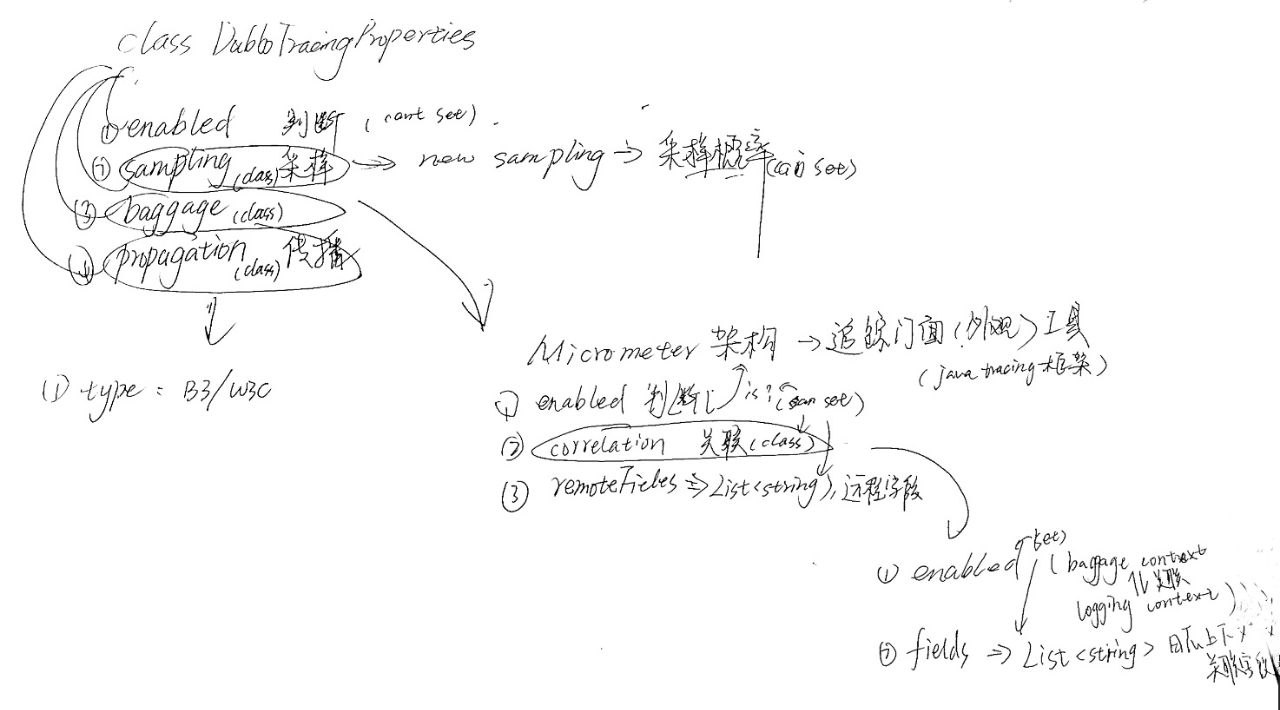 class DubboTracingProperties
① enabled 判断 (cant set).
② sampling (class) 采样 → new sampling → 采样概率 (can set)
③ baggage (class)
④ propagation (class) 传播
(1) type: B3/W3C
Micrometer 架构 → 追踪门面(外观)工具
(java tracing 框架)
① enabled 判断 is? (can set)
② correlation 关联 (class)
③ remoteFieles ⇒ List<string>, 远程字段
① enabled (set) (baggage context
关联
logging context)
② fields ⇒ List<string> 上下文
关联字段